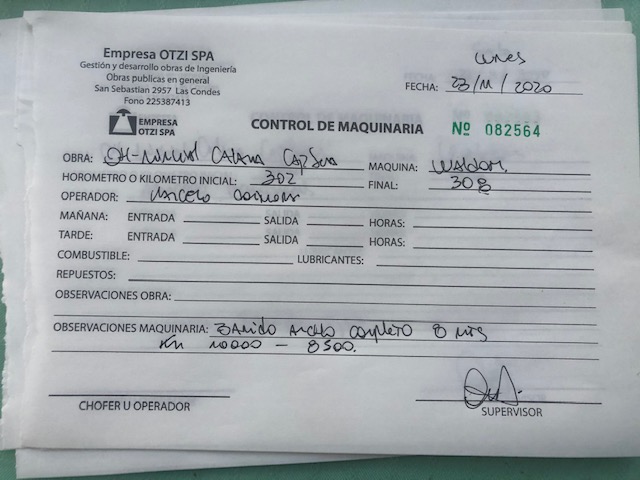 Empresa OTZI SPA
Gestión y desarrollo obras de Ingeniería
Obras publicas en general
San Sebastian 2957 Las Condes
Fono 225387413
EMPRESA
OTZI SPA
Lunes
FECHA: 23/11/2020
CONTROL DE MAQUINARIA
Nº 082564
OBRA: MAQUINA:
HOROMETRO O KILOMETRO INICIAL: 302 FINAL: 308
OPERADOR: Marcelo
MAÑANA: ENTRADA SALIDA HORAS:
TARDE: ENTRADA SALIDA HORAS:
COMBUSTIBLE: LUBRICANTES:
REPUESTOS:
OBSERVACIONES OBRA:
OBSERVACIONES MAQUINARIA: Barrido ancho completo 8 mts
Km 10000 - 8500.
CHOFER U OPERADOR
SUPERVISOR